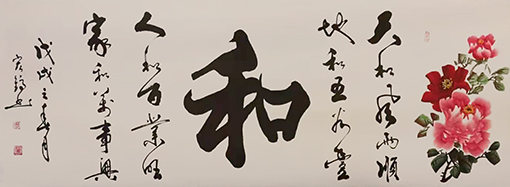 天和风雨順
地和五谷豐
和
人和百業旺
家和萬事興
戊戌之春月